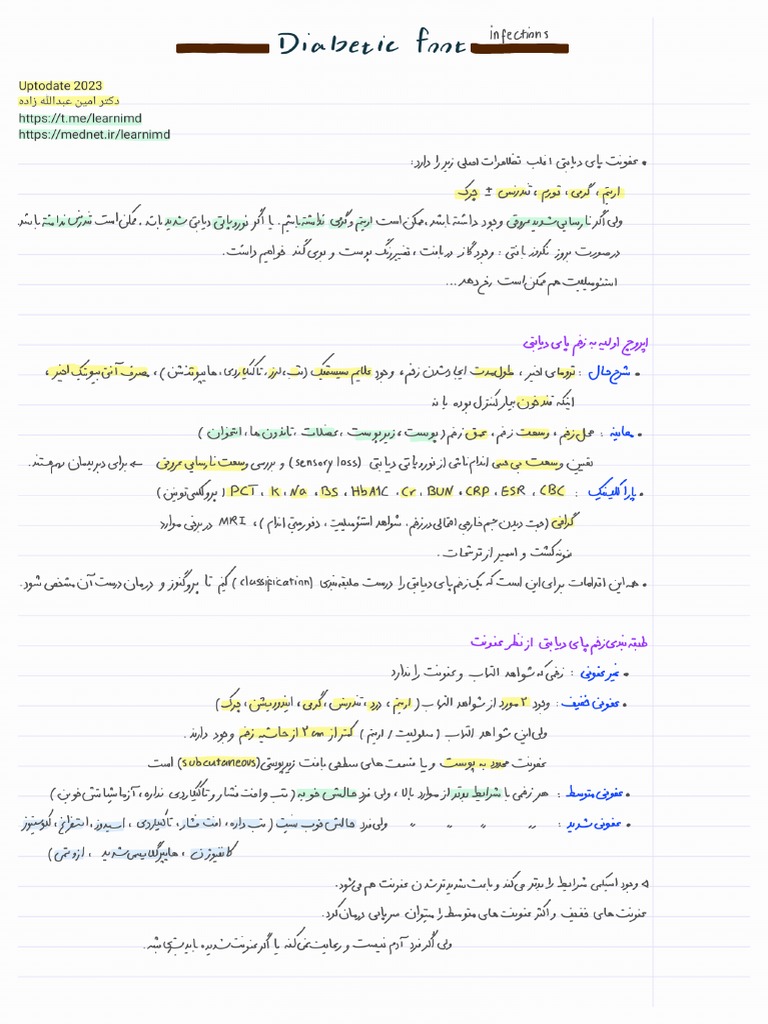 Diabetic foot infections
Uptodate 2023
دکتر امین عبدالله زاده
https://t.me/learnimd
https://mednet.ir/learnimd
• عفونت پای دیابتی اغلب تظاهرات اصلی زیر را دارد:
اریتم ، گرمی ، تورم ، تندرنس ± چرک
ولی اگر نارسایی شدید عروقی وجود داشته باشد ، ممکن است اریتم و گرمی نداشته باشیم . یا اگر نوروپاتی دیابتی شدید باشد ، ممکن است تندرنس نداشته باشد.
در صورت بروز نکروز بافتی : وجود گاز در بافت ، تغییر رنگ پوست و بوی گند خواهیم داشت.
استئومیلیت هم ممکن است رخ دهد ...
اپروچ اولیه به زخم پای دیابتی
• شرح حال : ترومای اخیر ، طول مدت ایجاد شدن زخم ، وجود علایم سیستمیک (تب ، لرز ، تاکیکاردی ، هایپوتنشن) ، مصرف آنتی بیوتیک اخیر ،
اینکه قند خون بیمار کنترل بوده یا نه
• معاینه : محل زخم ، وسعت زخم ، عمق زخم (پوست ، زیرپوست ، عضلات ، تاندون ها ، استخوان)
تعیین وسعت بی حسی اندام ناشی از نوروپاتی دیابتی (sensory loss) و بررسی وسعت نارسایی عروقی ← برای دبریدمان مهمند.
• پاراکلینیک : CBC ، ESR ، CRP ، BUN ، Cr ، HbA1C ، BS ، Na ، K ، PCT (پروکلسی تونین)
گرافی (جهت دیدن جسم خارجی احتمالی در زخم ، شواهد استئومیلیت ، دفورمیتی اندام) ، MRI در برخی موارد
نمونه کشت و اسمیر از ترشحات .
• همه این اقدامات برای این است که یک زخم پای دیابتی را درست طبقه بندی (classification) کنیم تا پروگنوز و درمان درست آن مشخص شود.
طبقه بندی زخم پای دیابتی از نظر عفونت
• غیر عفونی : زخمی که شواهد التهاب و عفونت را ندارد
• عفونی خفیف : وجود ۲ مورد از شواهد التهاب (اریتم ، درد ، تندرنس ، گرمی ، ایندوریشن ، چرک)
ولی این شواهد التهاب (سلولیت / اریتم) کمتر از ۲ cm از حاشیه زخم وجود دارند .
عفونت محدود به پوست و یا قسمت های سطحی بافت زیرپوستی (subcutaneous) است
• عفونی متوسط : هر زخمی با شرایط بدتر از موارد بالا ، ولی فرد حالش خوبه (تب و افت فشار و تاکیکاردی نداره ، آزمایشاتش خوبن)
• عفونی شدید : " " " " ولی فرد حالش خوب نیست (تب داره ، افت فشار ، تاکیکاردی ، اسیدوز ، استفراغ ، لکوسیتوز
کانفیوژن ، هایپرگلایسمی شدید ، ازوتمی)
⊳ وجود ایسکمی شرایط را بدتر می کند و باعث شدیدتر شدن عفونت هم می شود.
عفونت های خفیف و اکثر عفونت های متوسط را میتوان سرپایی درمان کرد.
ولی اگر فرد آدم نیست و رعایت نمی کنه یا اگر عفونت شدیده باید بستری شه.